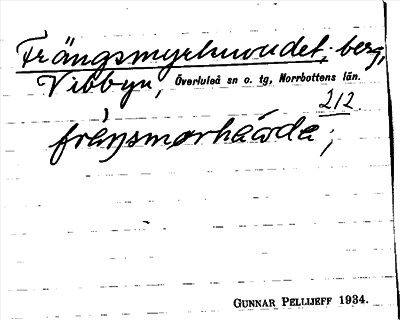 Frängsmyrhuvudet, berg,
Vibbyn, Överluleå sn o. tg, Norrbottens län.
212
frèŋsmørhåẁda;
GUNNAR PELLIJEFF 1934.